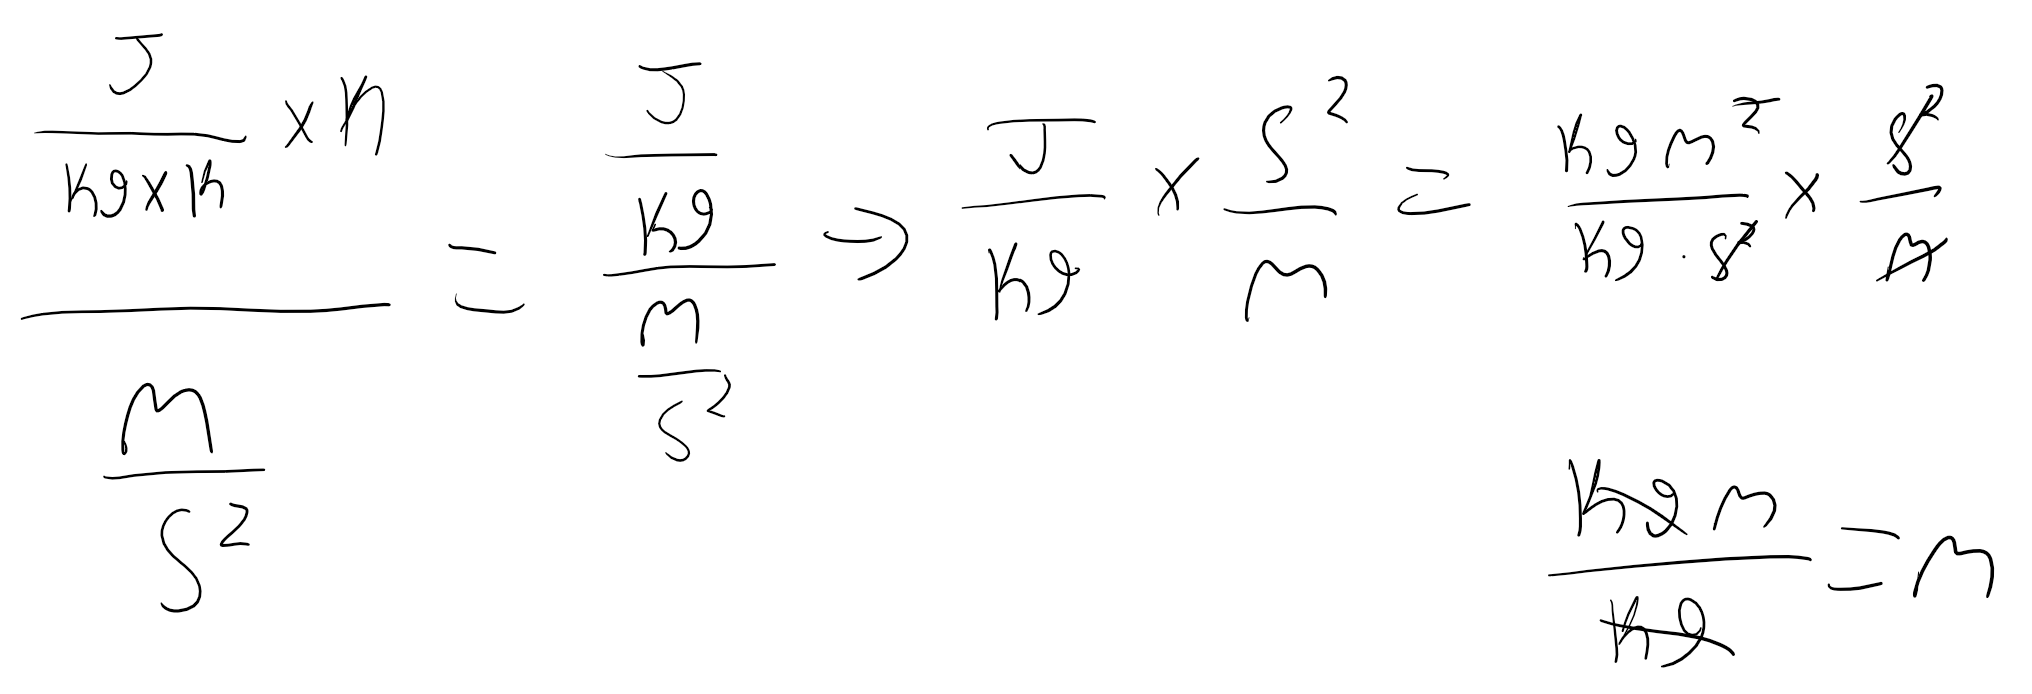 \frac{\frac{J}{kg \times k} \times k}{\frac{m}{s^2}} = \frac{\frac{J}{kg}}{\frac{m}{s^2}} \rightarrow \frac{J}{kg} \times \frac{s^2}{m} = \frac{kg m^2}{kg \cdot s^2} \times \frac{s^2}{m}
\frac{kg m}{kg} = m